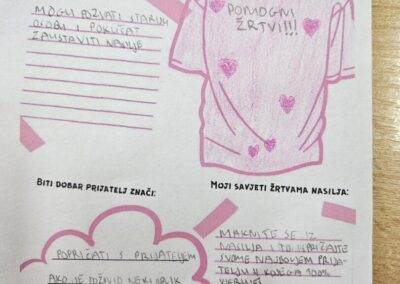 MOGU POZVATI STARIJU
OSOBU I POKUŠAT
ZAUSTAVITI NASILJE
POMOGNI
ŽRTVI!!!
BITI DOBAR PRIJATELJ ZNAČI:
POPRIČATI S PRIJATELJEM
AKO JE DOŽIVIO NEKI OBLIK
MOJI SAVJETI ŽRTVAMA NASILJA:
MAKNITE SE IZ
NASILJA I TO ISPRIČAJTE
SVOME NAJBOLJEM PRIJA-
TELJU U KOJEGA 100%
VJERUJETE